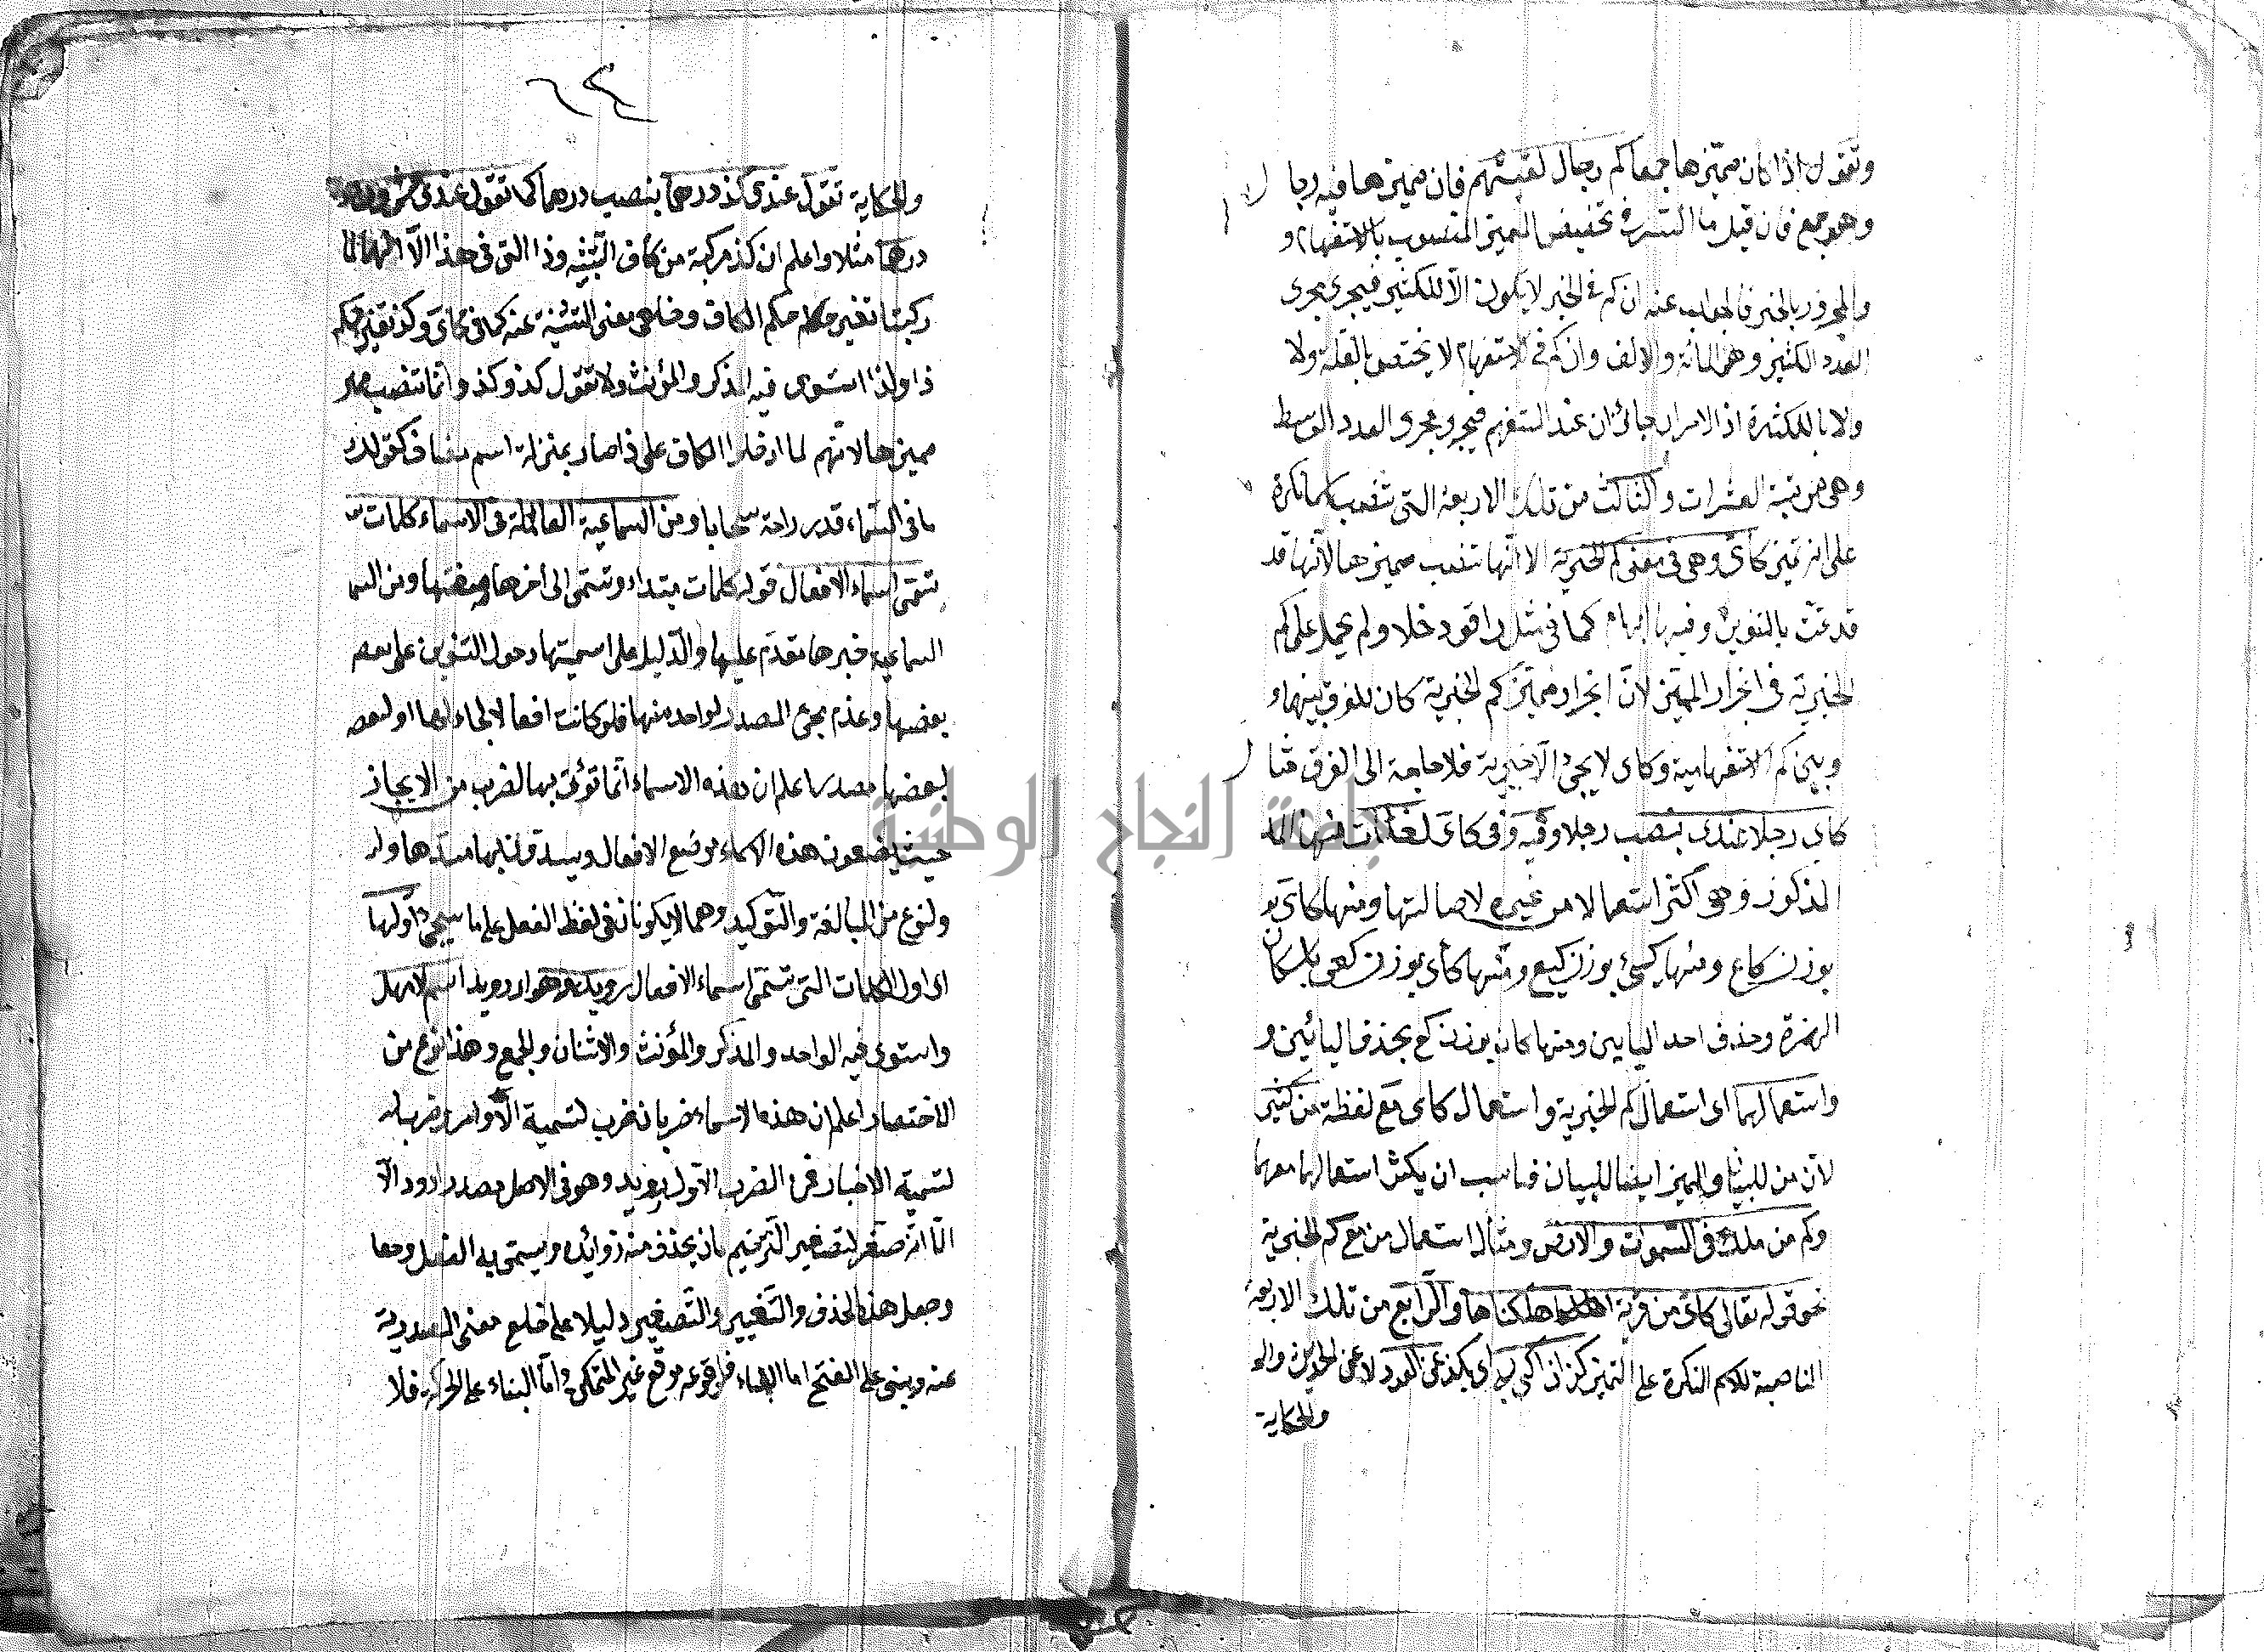 وتقول اذا كان مميزها جمعا كم رجال لقيتهم فان مميزها فيه رجا
وهو جمع فان قيل ما السر في تخفيض المميز المنصوب بالاستفهام و
والمجرور بالخبر فالجواب عنه ان كم في الخبر لا يكون الا للكثير فيجرى مجرى
العدد الكثير وهو المائة والالف وان كم في الاستفهام لا يختص بالقلة ولا
ولا بالكثرة اذ الامران جائزان عند المستفهم فيجرى مجرى العدد الوسط
وهى مرتبة العشرات والثالث من تلك الاربعة التى تنصب اسما نكرة
على انه تميز كاى وهى فى معنى كم الخبرية الا انها تنصب مميزها لانها قد
قد تمت بالتنوين وفيها ابهام كما فى مثل راقود خلا ولم يحمل على كم
الخبرية فى انجرار المميز لان انجرار مميز كم الخبرية كان للفرق بينها و
وبين كم الاستفهامية وكاى لا يجئ الا خبرية فلا حاجة الى الفرق مثا
كاى رجلا عندى بنصب رجلا وفيه وفى كاى لغات منها المذ
المذكور وهى اكثر استعمالا من غيره لاصالتها ومنها كاى بو
بوزن كاع ومنها كيئ بوزن كيع ومنها كأى بوزن كعى باسكان
الهمزة وحذف احد اليايين ومنها كان بوزن كع بحذف اليائين و
واستعمالهما اى استعمال كم الخبرية واستعمال كاى مع لفظة من كثير
لان من للبيان والمميز ايضا للبيان فناسب ان يكثر استعمالهما معهما
وكم من ملك فى السموات والارض ومثال استعمال من مع كم الخبرية
نحو قوله تعالى كاى من قرية اهلكناها والرابع من تلك الاربعة
الناصبة للاسم النكرة على التميز كذا اذا كنى به اى بكذ عن العدد لا عن الحديث والـ
والحكاية
٦٤
والحكاية تقول عندى كذ درهما بنصب درهما كما تقول عندى عشرون
درهما مثلا واعلم ان كذ مركبة من كاف التشبيه وذا التى فى هذا الا انهما لما
ركبتا تغير حكم الكاف وخلع معنى التشبيه عنه كما فى كاى وكذ تغير حكم
ذا ولذا استوى فيه المذكر والمؤنث ولا تقول كذ وكذ وانما تنصب مميز
مميزها لانهم لما ادخلوا الكاف على ذا صار بمنزلة اسم مضاف كقولك
ما فى السماء قدر راحة سحابا ومن السماعية العاملة فى الاسماء كلمات تسـ
تسمى اسماء الافعال قوله كلمات مبتداء وتسمى الى اخرها صفتها ومن السما
السماعية خبرها تقدم عليها والدليل على اسميتها دخول التنوين على بعضـ
بعضها وعدم مجئ المصدر لواحد منها فلو كانت افعالا لجاء لهما او لبعضـ
لبعضها مصدر اعلم ان هذه الاسماء انما تؤتى بها لضرب من الايجاز
حيث يضعون هذه الاسماء موضع الافعال ويسد قائليها مسدها ولـ
ولنوع من المبالغة والتوكيد وهما لا يكونان فى لفظ الفعل على ما سيجئ اولها
اى اول الكلمات التى تسمى اسماء الافعال رويد وهو ارويد اسم لامهل
واستوى فيه الواحد والمذكر والمؤنث والاثنان والجمع وهذا نوع من
الاختصار اعلم ان هذه الاسماء ضربان ضرب لتسمية الاوامر وضرب لـ
لتسمية الاخبار فمن الضرب الاول رويد وهو فى الاصل مصدر ارود الا
الا انه صغر لتصغير الترخيم بان يحذف منه زوائده ويسمى به الفعل وجعل
وجعل هذا الحذف والتغيير والتصغير دليلا على خلع معنى المصدرية
عنه وبنى على الفتح اما البناء فلوقوعه موقع غير المتمكن واما البناء على الحركة فلا